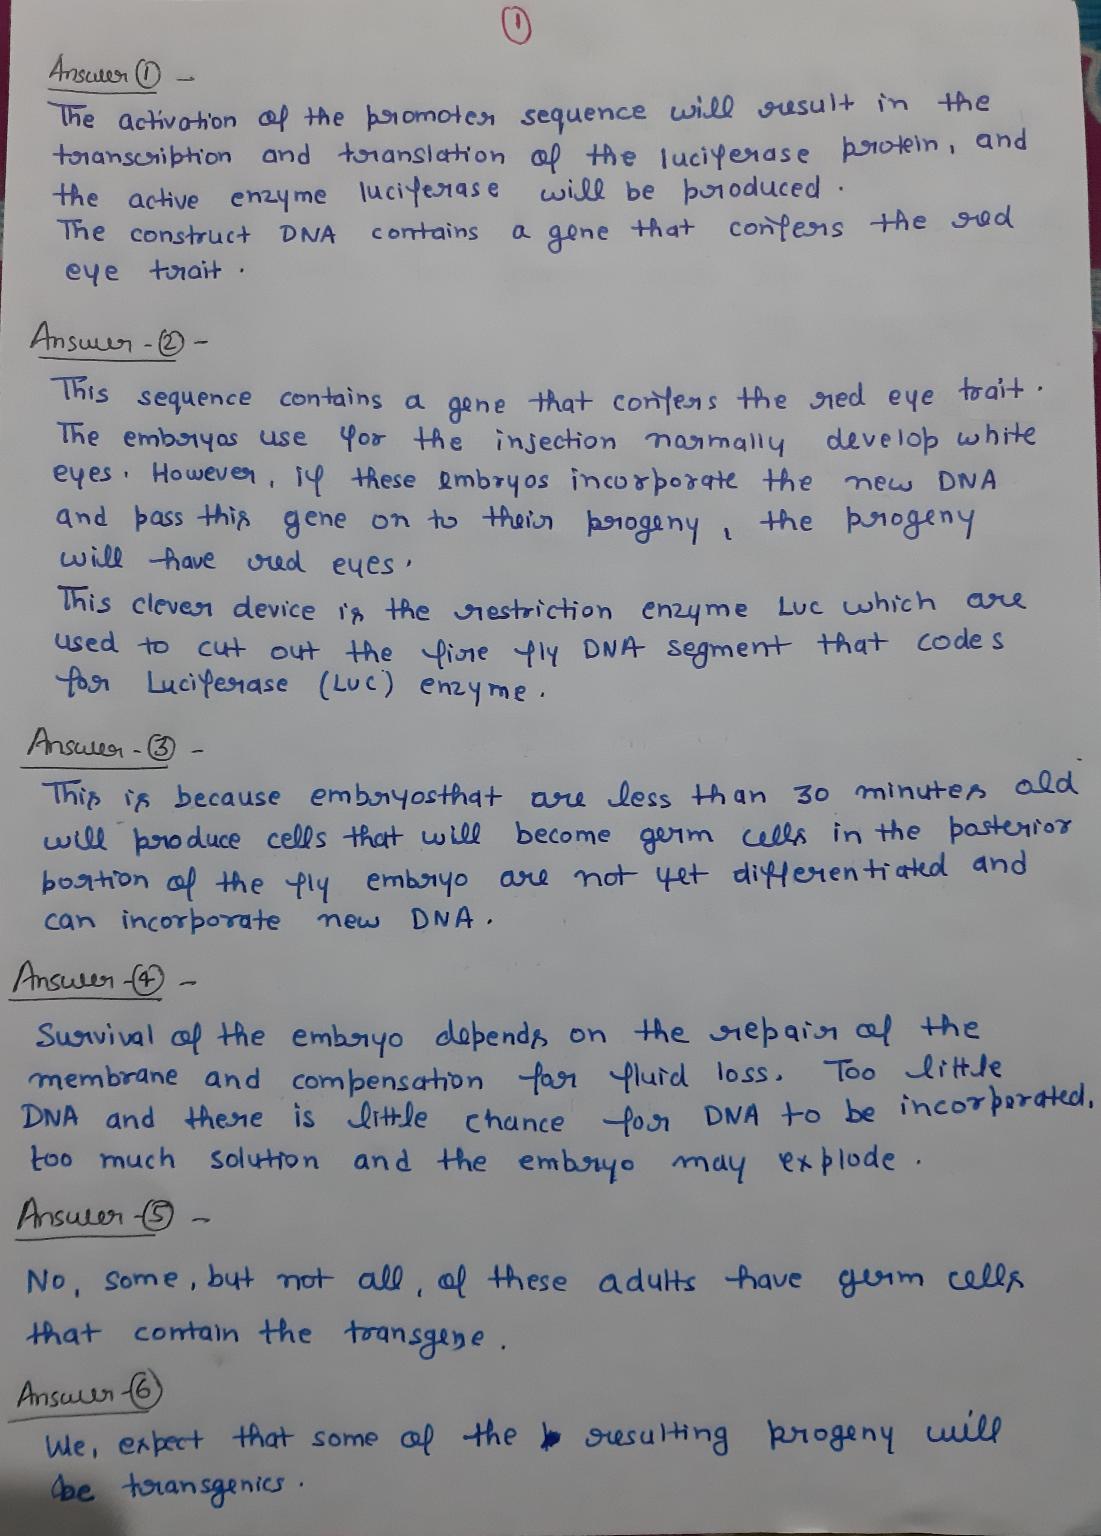 1
Answer ① -
The activation of the promoter sequence will result in the
transcription and translation of the luciferase protein, and
the active enzyme luciferase will be produced.
The construct DNA contains a gene that confers the red
eye trait.
Answer - ② -
This sequence contains a gene that confers the red eye trait.
The embryos use for the injection normally develop white
eyes. However, if these embryos incorporate the new DNA
and pass this gene on to their progeny, the progeny
will have red eyes.
This clever device is the restriction enzyme Luc which are
used to cut out the fire fly DNA segment that codes
for Luciferase (Luc) enzyme.
Answer - ③ -
This is because embryosthat are less than 30 minutes old
will produce cells that will become germ cells in the posterior
portion of the fly embryo are not yet differentiated and
can incorporate new DNA.
Answer - ④ -
Survival of the embryo depends on the repair of the
membrane and compensation for fluid loss. Too little
DNA and there is little chance for DNA to be incorporated.
too much solution and the embryo may explode.
Answer - ⑤ -
No, some, but not all, of these adults have germ cells
that contain the transgene.
Answer - ⑥
We, expect that some of the resulting progeny will
be transgenics.